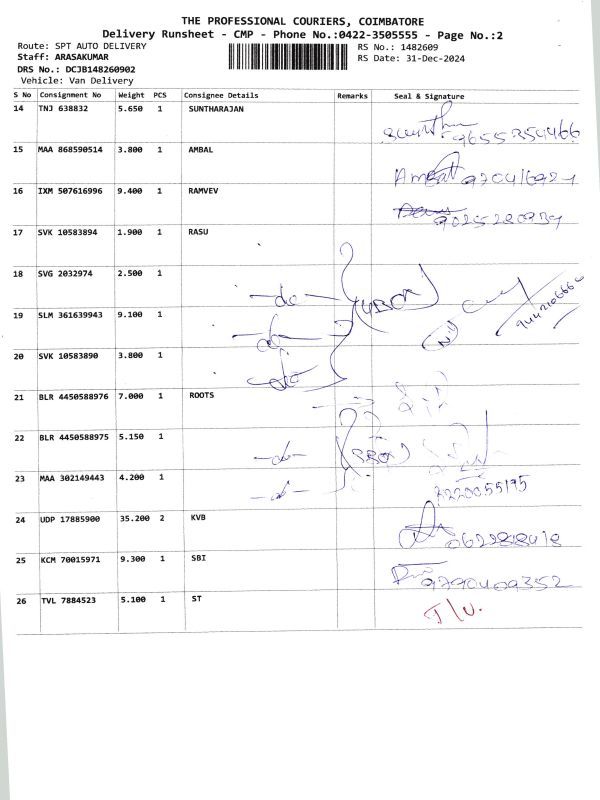 THE PROFESSIONAL COURIERS, COIMBATORE
Delivery Runsheet - CMP - Phone No.:0422-3505555 - Page No.:2
Route: SPT AUTO DELIVERY RS No.: 1482609
Staff: ARASAKUMAR RS Date: 31-Dec-2024
DRS No.: DCJB148260902
Vehicle: Van Delivery
S No Consignment No Weight PCS Consignee Details Remarks Seal & Signature
14 TNJ 638832 5.650 1 SUNTHARAJAN
15 MAA 868590514 3.800 1 AMBAL
16 IXM 507616996 9.400 1 RAMVEV
17 SVK 10583894 1.900 1 RASU
18 SVG 2032974 2.500 1
-do-
19 SLM 361639943 9.100 1
-do-
20 SVK 10583890 3.800 1
-do-
21 BLR 4450588976 7.000 1 ROOTS
22 BLR 4450588975 5.150 1
-do-
23 MAA 302149443 4.200 1
-do-
24 UDP 17885900 35.200 2 KVB
25 KCM 70015971 9.300 1 SBI
9790409352
26 TVL 7884523 5.100 1 ST